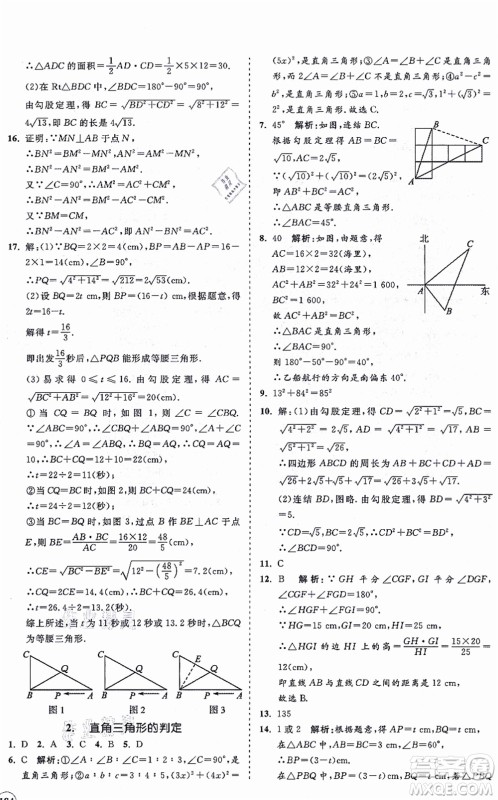 ∴△ADC 的面积=1/2AD·CD=1/2×15×12=30.
(2)在 Rt△BDC 中,∠BDC=180°−90°=90°,
由勾股定理,得BC=√(BD²+CD²)=√(8²+12²)=
4√13,即 BC 的长是 4√13.
16. 证明:∵MN⊥AB 于点 N,
∴BN²=BM²−MN²,AN²=AM²−MN².
∴BN²−AN²=BM²−AM².
又∵∠C=90°,∴AM²=AC²+CM².
∴BN²−AN²=BM²−AC²−CM².
又∵BM=CM,∴BN²−AN²=−AC²,
即 AN²−BN²=AC².
17. 解:(1)∵BQ=2×2=4(cm),
BP=AB−AP=16−2×1=14(cm),∠B=90°,
∴PQ=√(4²+14²)=√212=2√53(cm).
(2)设 BQ=2t cm,则 BP=(16−t) cm,得
2t=16−t,
解得 t=16/3.
即出发16/3秒后,△PQB 能形成等腰三角形.
(3)易求得 0≤t≤18.由勾股定理,得 AC=
√(BC²+AB²)=√(12²+16²)=20(cm).
①当 CQ=BQ 时,如图 1,则∠C=∠CBQ.
∵∠ABC=90°,∴∠CBQ+∠ABQ=90°,∠A+
∠C=90°.∴∠A=∠ABQ.∴BQ=AQ.∴CQ=
AQ=10 cm.∴BC+CQ=22(cm).
∴t=22÷2=11(秒);
②当 CQ=BC 时,如图 2,则 BC+CQ=24(cm).
∴t=24÷2=12(秒);
③当 BC=BQ 时,如图 3,过点 B 作 BE⊥AC 于点
E,则 BE=AB·BC/AC=16×12/20=48/5(cm).
∴CE=√(BC²−BE²)=√(12²−(48/5)²)=7.2(cm).
∴CQ=2CE=14.4(cm).∴BC+CQ=26.4(cm).
∴t=26.4÷2=13.2(秒).
综上所述,当 t 为 11 秒或 12 秒或 13.2 秒时,
△BCQ 为等腰三角形.
C Q B P A
图 1
C Q B P A
图 2
C E Q B P A
图 3
2. 直角三角形的判定
1. D 2. A 3. C 4. B 5. D
6. C 解析:①a∶b∶c=1∶
(5x)²,是直角三角形;③∠A=90°−∠B,∠A+
∠B=90°,∠C=90°,是直角三角形;④a²−c²=
b²,是直角三角形.故选 C.
7. 45° 解析:如图,连结 BC.
根据勾股定理,得 AC=BC=
√10,AB=√20.
∵(√10)²+(√10)²=(√20)²,
∴AC²+BC²=AB².
∴△ABC 是等腰直角三角形.
∴∠BAC=45°.
B C A
8. 40 解析:如图,由题意,得
AC=16×2=32(海里),
AB=12×2=24(海里).
AC²+AB²=32²+24²=
1 600,
BC²=40²=1 600.
∴AC²+AB²=BC².
∴∠BAC=90°.
则 180°−50°−90°=40°.
∴乙船航行的方向为南偏东 40°.
北 C A 东 B
9. 13²+84²=85²
10. 解:(1)由勾股定理,得 CD=√(2²+1²)=√5,BC=
√(4²+2²)=2√5,AB=√(4²+1²)=√17,AD=
√(5²+1²)=√26.
∴四边形 ABCD 的周长为 AB+BC+CD+AD=
√26+2√5+√5+√17=√26+3√5+√17.
(2)连结 BD,图略.由勾股定理,得 BD=√(4²+3²)=
5.
∵CD²+BC²=5+20=25=BD²,
∴∠BCD=90°.
11. C
12. B 解析:∵GH 平分∠CGF,GI 平分∠DGF,
∴∠HGI=90°.∴HI=√(GH²+GI²)=25 cm.由
题意可知线段 FG 与 HI 垂直平分,∴FG=
2×GH·GI/HI=2×15×20/25=24(cm).故选 B.
13. 135
14. 1 或 2 解析:∵AP=t cm,BQ=t cm,
在△PBQ 中,BP=(3−t) cm,BQ=t cm,若